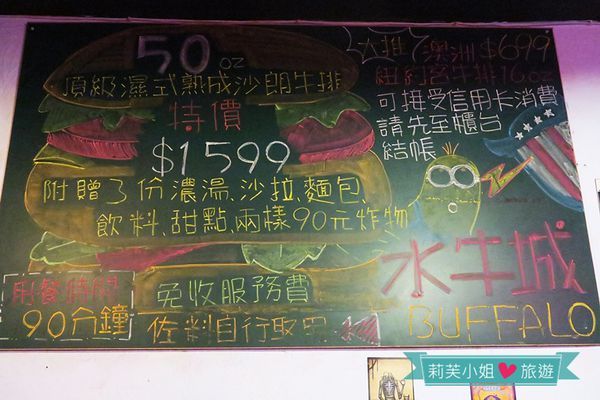 50 oz
頂級濕式熟成沙朗牛排
特價
$1599
附贈3份濃湯、沙拉、麵包、
飲料、甜點、兩樣90元炸物
用餐時間
90分鐘
免收服務費
佐料自行取用
大推 澳洲 $699
紐約客牛排 16oz
可接受信用卡消費
請先至櫃台
結帳
水牛城
BUFFALO
莉芙小姐 旅遊